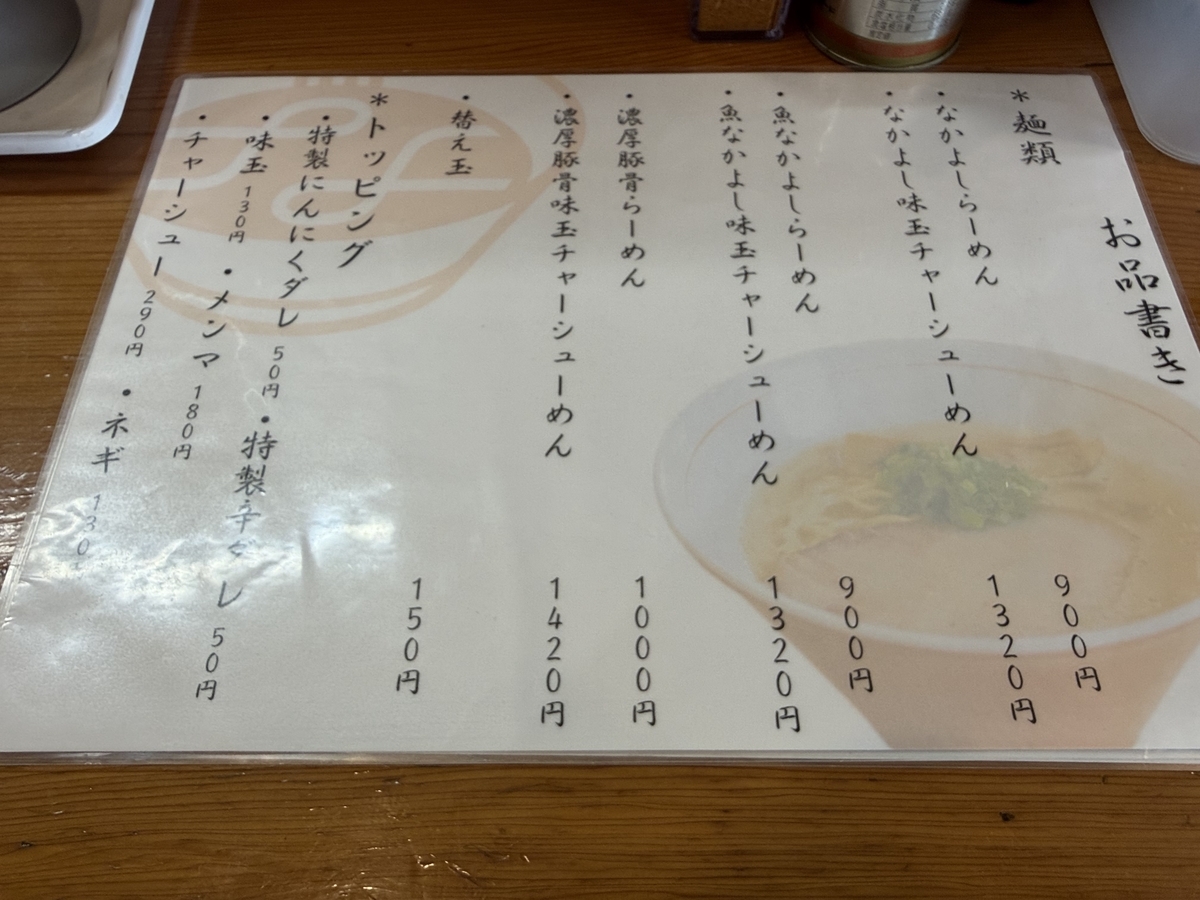 お品書き
＊麺類
・なかよしらーめん 900円
・なかよし味玉チャーシューめん 1320円
・魚なかよしらーめん 900円
・魚なかよし味玉チャーシューめん 1320円
・濃厚豚骨らーめん 1000円
・濃厚豚骨味玉チャーシューめん 1420円
・替え玉 150円
＊トッピング
・特製にんにくダレ 50円 ・特製辛ダレ 50円
・味玉 130円 ・メンマ 180円
・チャーシュー 290円 ・ネギ 130